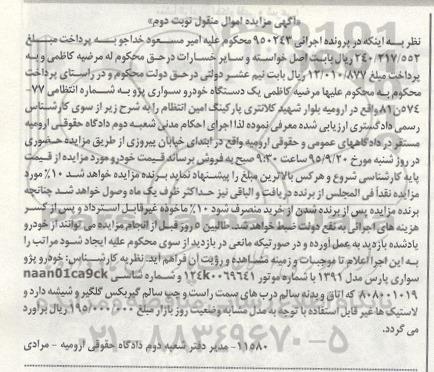 «آگهی مزایده اموال منقول نوبت دوم»
نظر به اینکه در پرونده اجرائی ۹۵۰۲۴۳ محکوم علیه امیر مسعود خداجو به پرداخت مبلغ
۲۴۰/۲۱۷/۵۵۲ ریال بابت اصل خواسته و سایر خسارات در حق محکوم له مرضیه کاظمی و به
پرداخت مبلغ ۱۲/۰۱۰/۸۷۷ ریال بابت نیم عشر دولتی در حق دولت محکوم و در راستای پرداخت
محکوم به محکوم علیها مرضیه کاظمی یک دستگاه خودرو سواری پژو به شماره انتظامی ۷۷-
۵۷۴ن۸۱ واقع در ارومیه بلوار شهید کلانتری پارکینگ امین النظام را به شرح زیر از سوی کارشناس
رسمی دادگستری ارزیابی شده معرفی نموده لذا اجرای احکام مدنی شعبه دوم دادگاه حقوقی ارومیه
مستقر در دادگاههای عمومی و حقوقی ارومیه واقع در ابتدای خیابان پیروزی از طریق مزایده حضوری
در روز شنبه مورخ ۹۵/۹/۲۰ ساعت ۹:۳۰ صبح به فروش برساند قیمت خودرو مورد مزایده از قیمت
پایه کارشناسی شروع و هر کس بالاترین مبلغ را پیشنهاد نماید برنده مزایده خواهد شد ۱۰٪ مورد
مزایده نقداً فی المجلس از برنده دریافت و الباقی نیز حداکثر ظرف یک ماه وصول خواهد شد چنانچه
برنده مزایده پس از برنده شدن از خرید منصرف شود ۱۰٪ ماخوذه غیرقابل استرداد و پس از کسر
هزینه های اجرائی به نفع دولت ضبط خواهد شد. طالبین ۵ روز قبل از انجام مزایده می توانند از خودرو
یادشده بازدید به عمل آورده و در صورتیکه مانعی در بازدید از سوی محکوم علیه ایجاد شود مراتب را
به این اجرا اعلام تا موجبات و زمینه مشاهده و رؤیت آن فراهم آید. نظریه کارشناس: خودرو پژو
سواری پارس مدل ۱۳۹۱ با شماره موتور ۱۲۴k۰۰۶۹۶۴۱ و شماره شاسی naan01ca9ck
۸۰۸۰۰۱۰۱۹ که اتاق و بدنه سالم درب های سمت راست و چپ سالم گیربکس گلگیر و شیشه دارد و
لاستیک ها غیر قابل استفاده با توجه به مدل مشابه وضعیت روز بازار مبلغ ۱۹۵/۰۰۰/۰۰۰ ریال برآورد
می گردد.
۱۱۵۸۰- مدیر دفتر شعبه دوم دادگاه حقوقی ارومیه - مرادی
۰۲۱-۸۸۳۴۹۶۷۰-۵